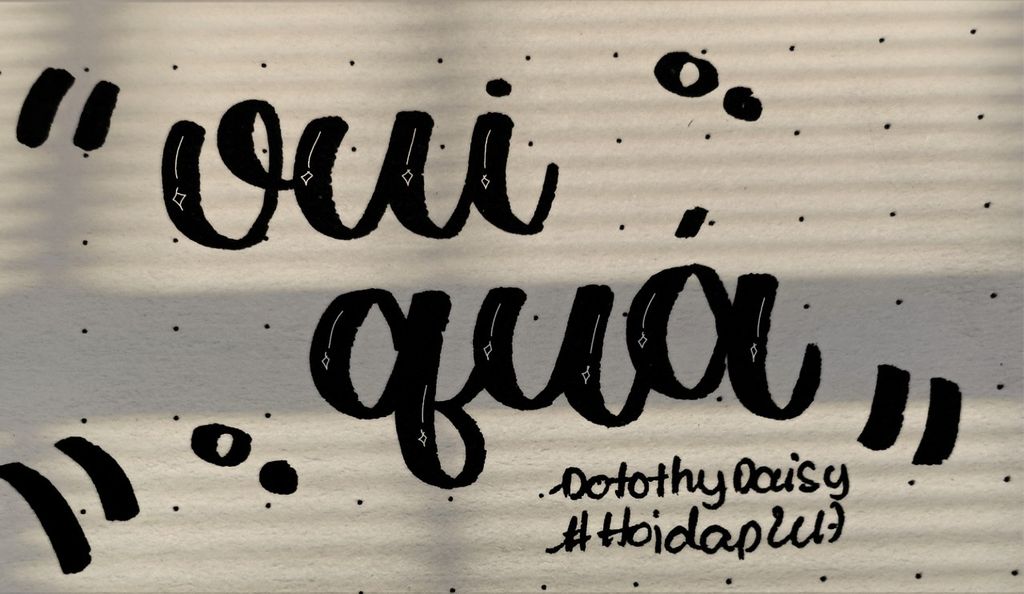 "vui
quá"
DotothyDaisy
#Hoidap247